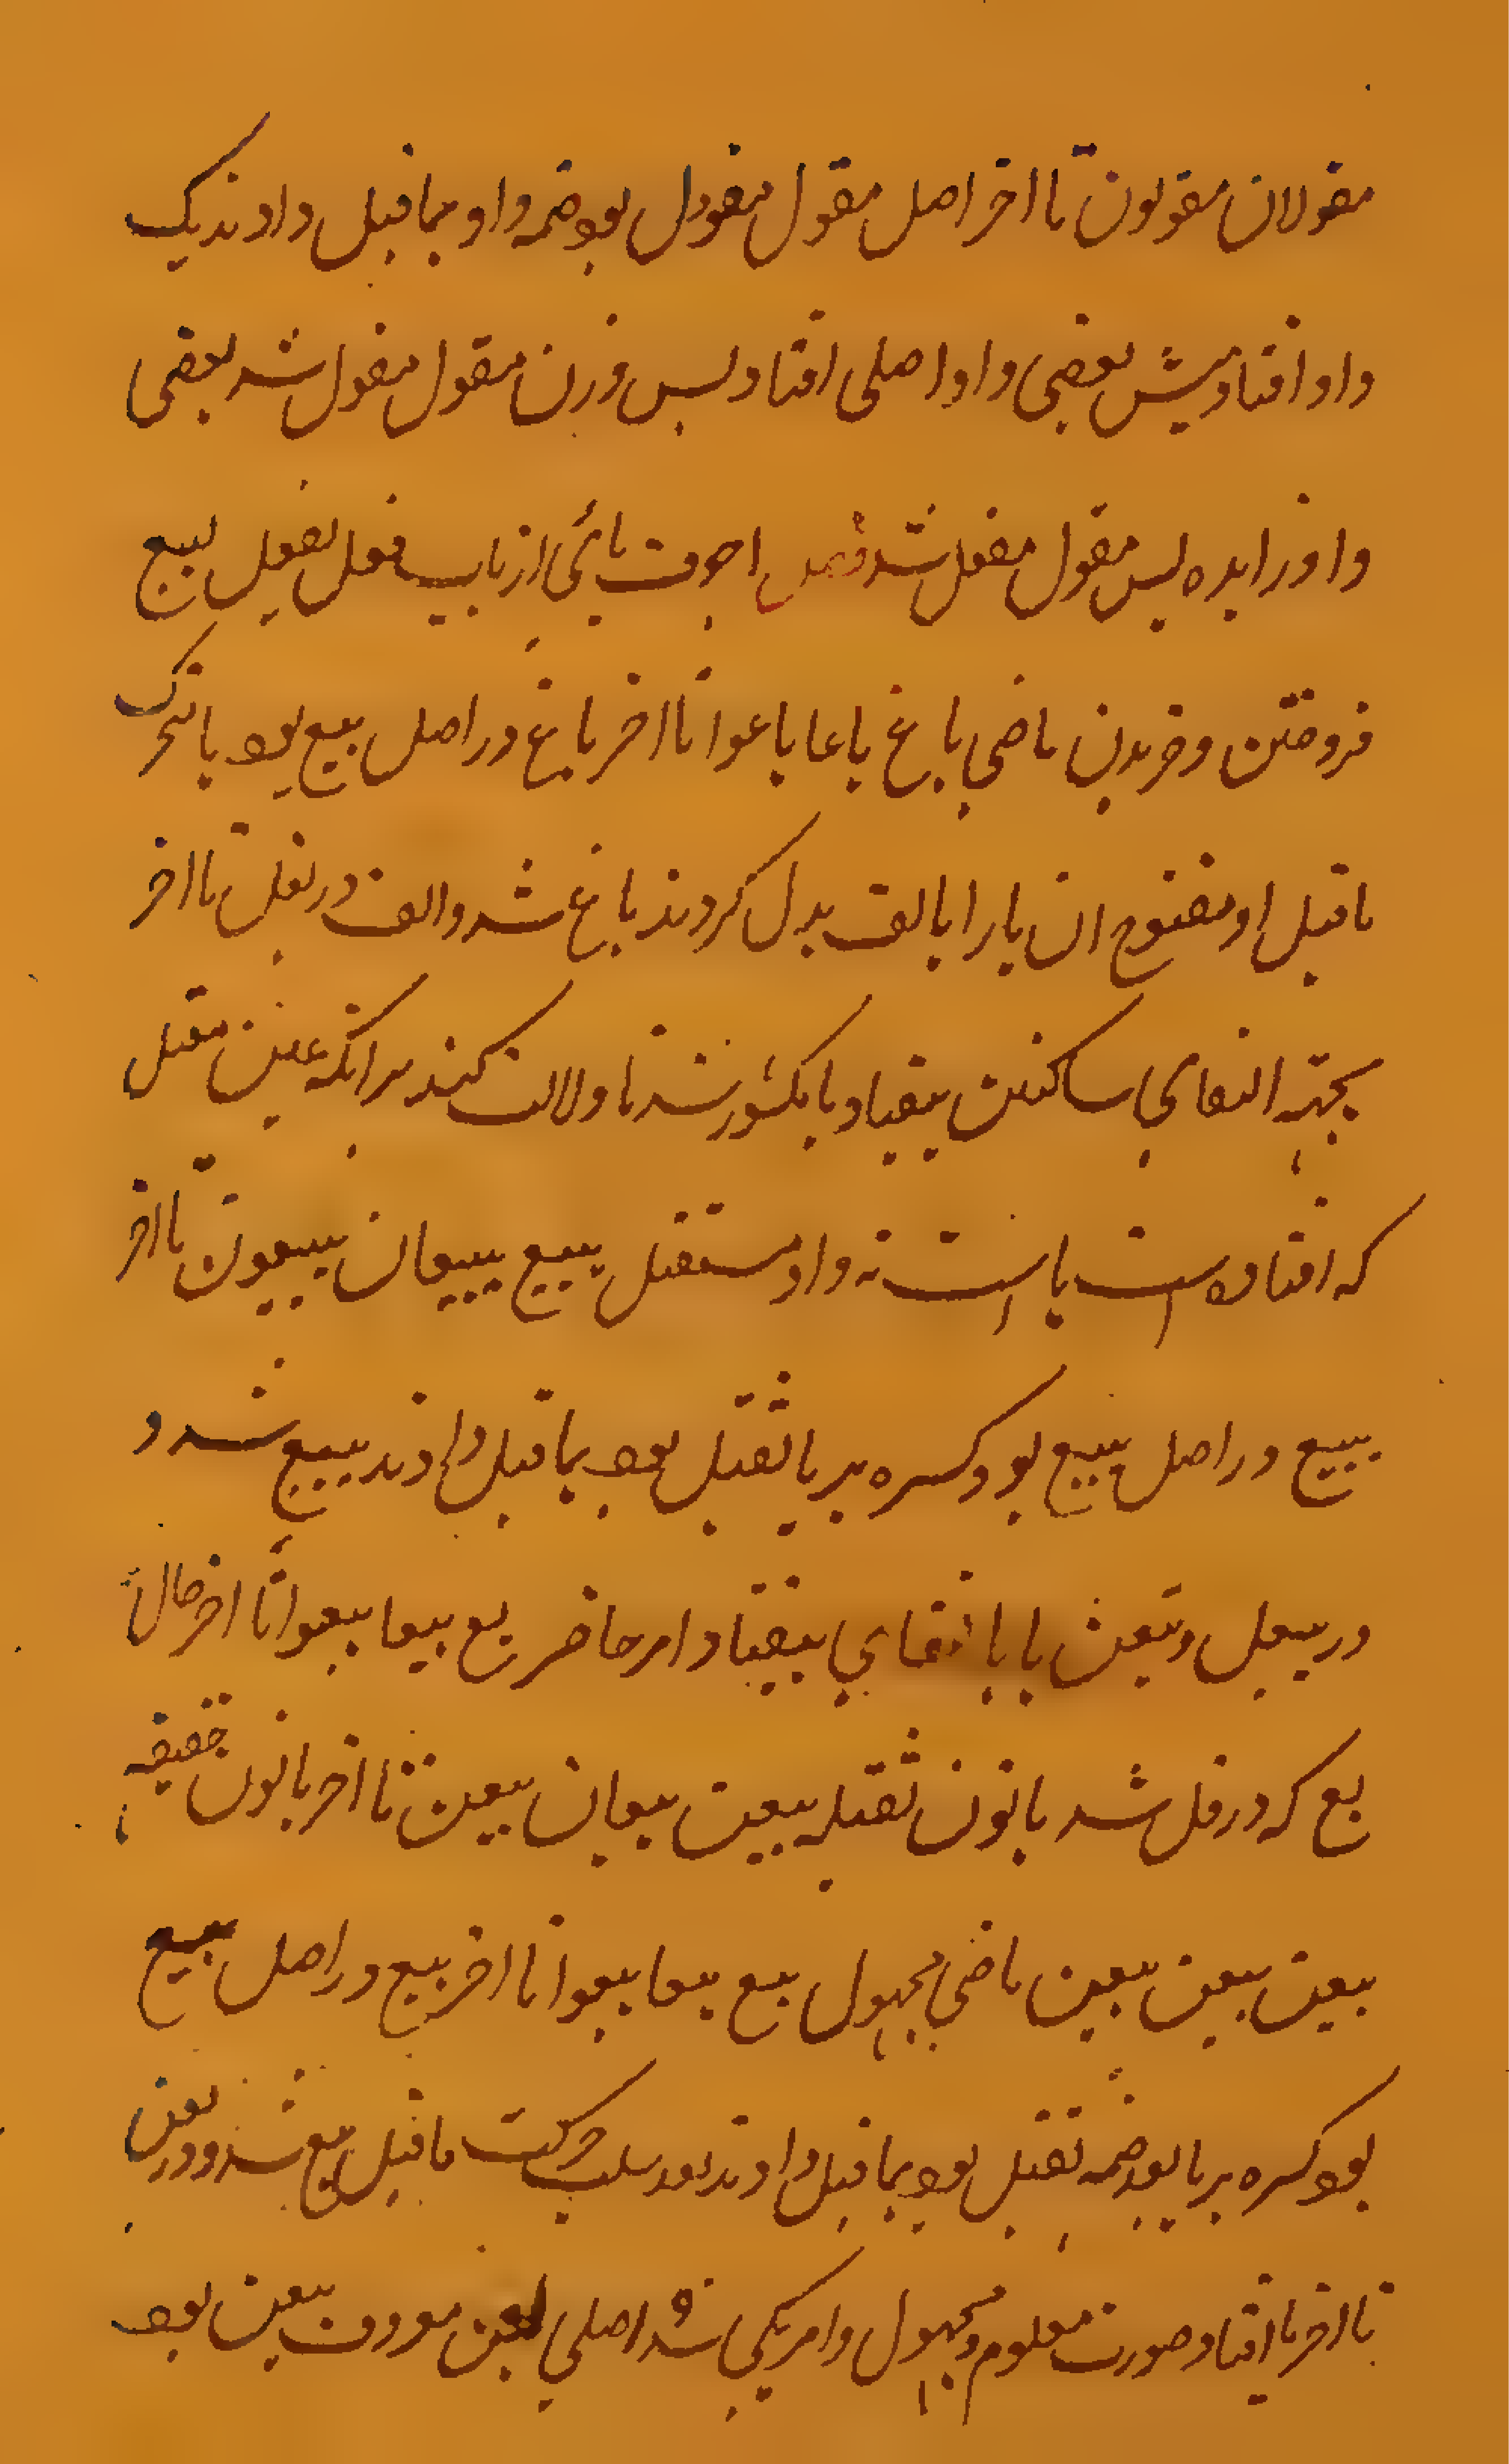 مقولان مقولون تا اخر اصل مقول مقوول بود ضمه واو بما قبل دادند یک
واو افتاد پیش بعضی واو اصلی افتاد پس وزن مقول مفول شد بعضی
واو زایده پس مقول مفعل شد فصل اجوف یائی از باب فعل یفعل البیع
فروختن و خریدن ماضی باع باعا باعوا تا اخر باع در اصل بیع بود یا متحرک
ما قبل او مفتوح ان یا را بالف بدل کردند باع شد و الف در بعن تا اخر
بجهة التقای ساکنین بیفتاد با مکسور شد تا دلالت کند برانکه عین فعل
که افتاده است یا است نه واو مستقبل یبیع یبیعان یبیعون تا اخر
یبیع در اصل یبیع بود کسره بر یا ثقیل بود بما قبل دادند یبیع شد و
در یبعن و تبعن یا بالتقای بیفتاد امر حاضر بع بیعا بیعوا تا اخر حال
بع که در قل شد بانون ثقیله بیعن بیعان بیعن تا اخر بانون خفیفه
بیعن بیعن بیعن ماضی مجهول بیع بیعا بیعوا تا اخر بیع در اصل بیع
بود کسره بر یا بعد ضمه ثقیل بود بما قبل دادند بعد سلب حرکت ما قبل بیع شد و در بعن
تا اخر یا افتاد صورت معلوم و مجهول و امر یکی شد اصلی بعن معروف بیعن بود